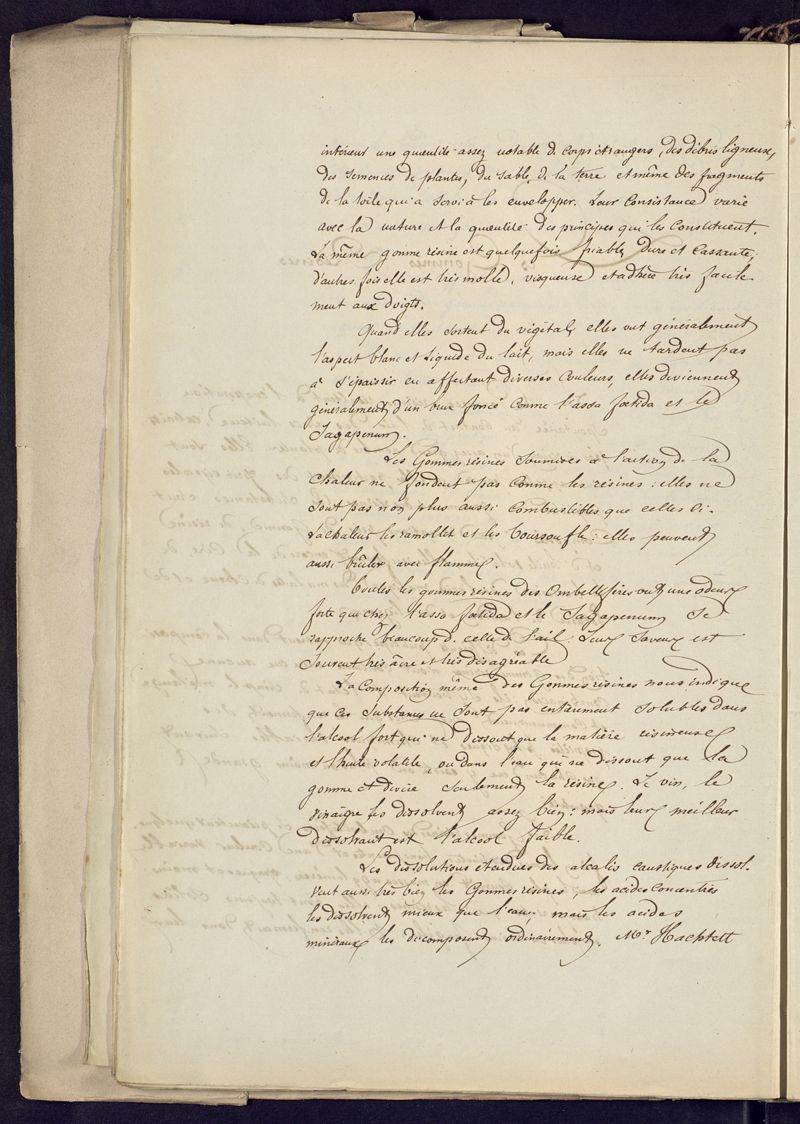 intérieur une quantité assez notable de corps étrangers, des débris ligneux,
des semences de plantes, du sable, de la terre et même des fragments
de la toile qui a servi à les envelopper. Leur consistance varie
avec la nature et la quantité des principes qui les constituent.
La même gomme résine est quelquefois friable, dure et cassante,
d'autres fois elle est très molle, visqueuse et adhère très facile-
ment aux doigts.
Quand elles sortent du végétal, elles ont généralement
l'aspect blanc et liquide du lait, mais elles ne tardent pas
à s'épaissir en affectant diverses couleurs, elles deviennent
généralement d'un brun foncé comme l'assa foetida et le
Sagapenum.
Les Gommes résines soumises à l'action de la
chaleur ne fondent pas comme les résines : elles ne
sont pas non plus aussi combustibles que celles ci.
La chaleur les ramollit et les boursoufle : elles peuvent
aussi brûler avec flamme.
Toutes les gommes résines des Ombellifères ont une odeur
forte qui chez l'assa foetida et le Sagapenum se
rapproche beaucoup de celle de l'ail. Leur saveur est
souvent très âcre et très désagréable
La composition même des Gommes résines nous indique
que ces substances ne sont pas entièrement solubles dans
l'alcool fort qui ne dissout que la matière résineuse
et l'huile volatile, ou dans l'eau qui ne dissout que la
gomme et divise seulement la résine. Le vin, le
vinaigre les dissolvent assez bien : mais leur meilleur
dissolvant est l'alcool faible.
Les dissolutions étendues des alcalis caustiques dissol-
vent aussi très bien les Gommes résines, les acides concentrés
les dissolvent mieux que l'eau mais les acides
minéraux les décomposent ordinairement. Mr